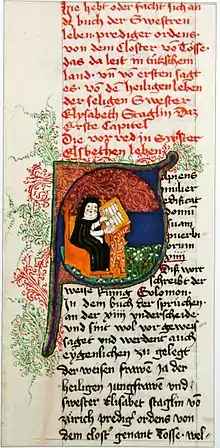 Hie hebt oder facht sich an
dz buch der Swestren
leben prediger ordens
von dem Closter vō Tösse
das da leit in türkschem
land vn̄ vō ersten sagt
es vō dē heiligen leben
der seligen Swester
Elysabeth Staglin Daz
Erste Capitel
Die vor red in Swester
Elsbethen leben
Sapiens
mulier
edificat
domū
suam
puerbi
orum
xiiij
Diß wort
schreibt der
weise küng Solomon
In dem buch der sprüchen
an der xiiij vnderscheide
vnd sint wol vor gewis
saget vnd werdent auch
eygenlichen zu gelegt
der weisen frawē ja der
heiligen jungfrawe vnd
swester Elisabet staglin vō
zürich prediger ordens von
dem closter genant Töss wol